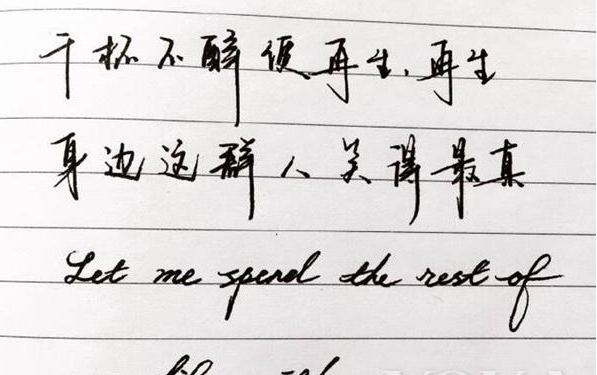 千杯不醉便再生,再生
身边这群人笑得最真
Let me spend the rest of